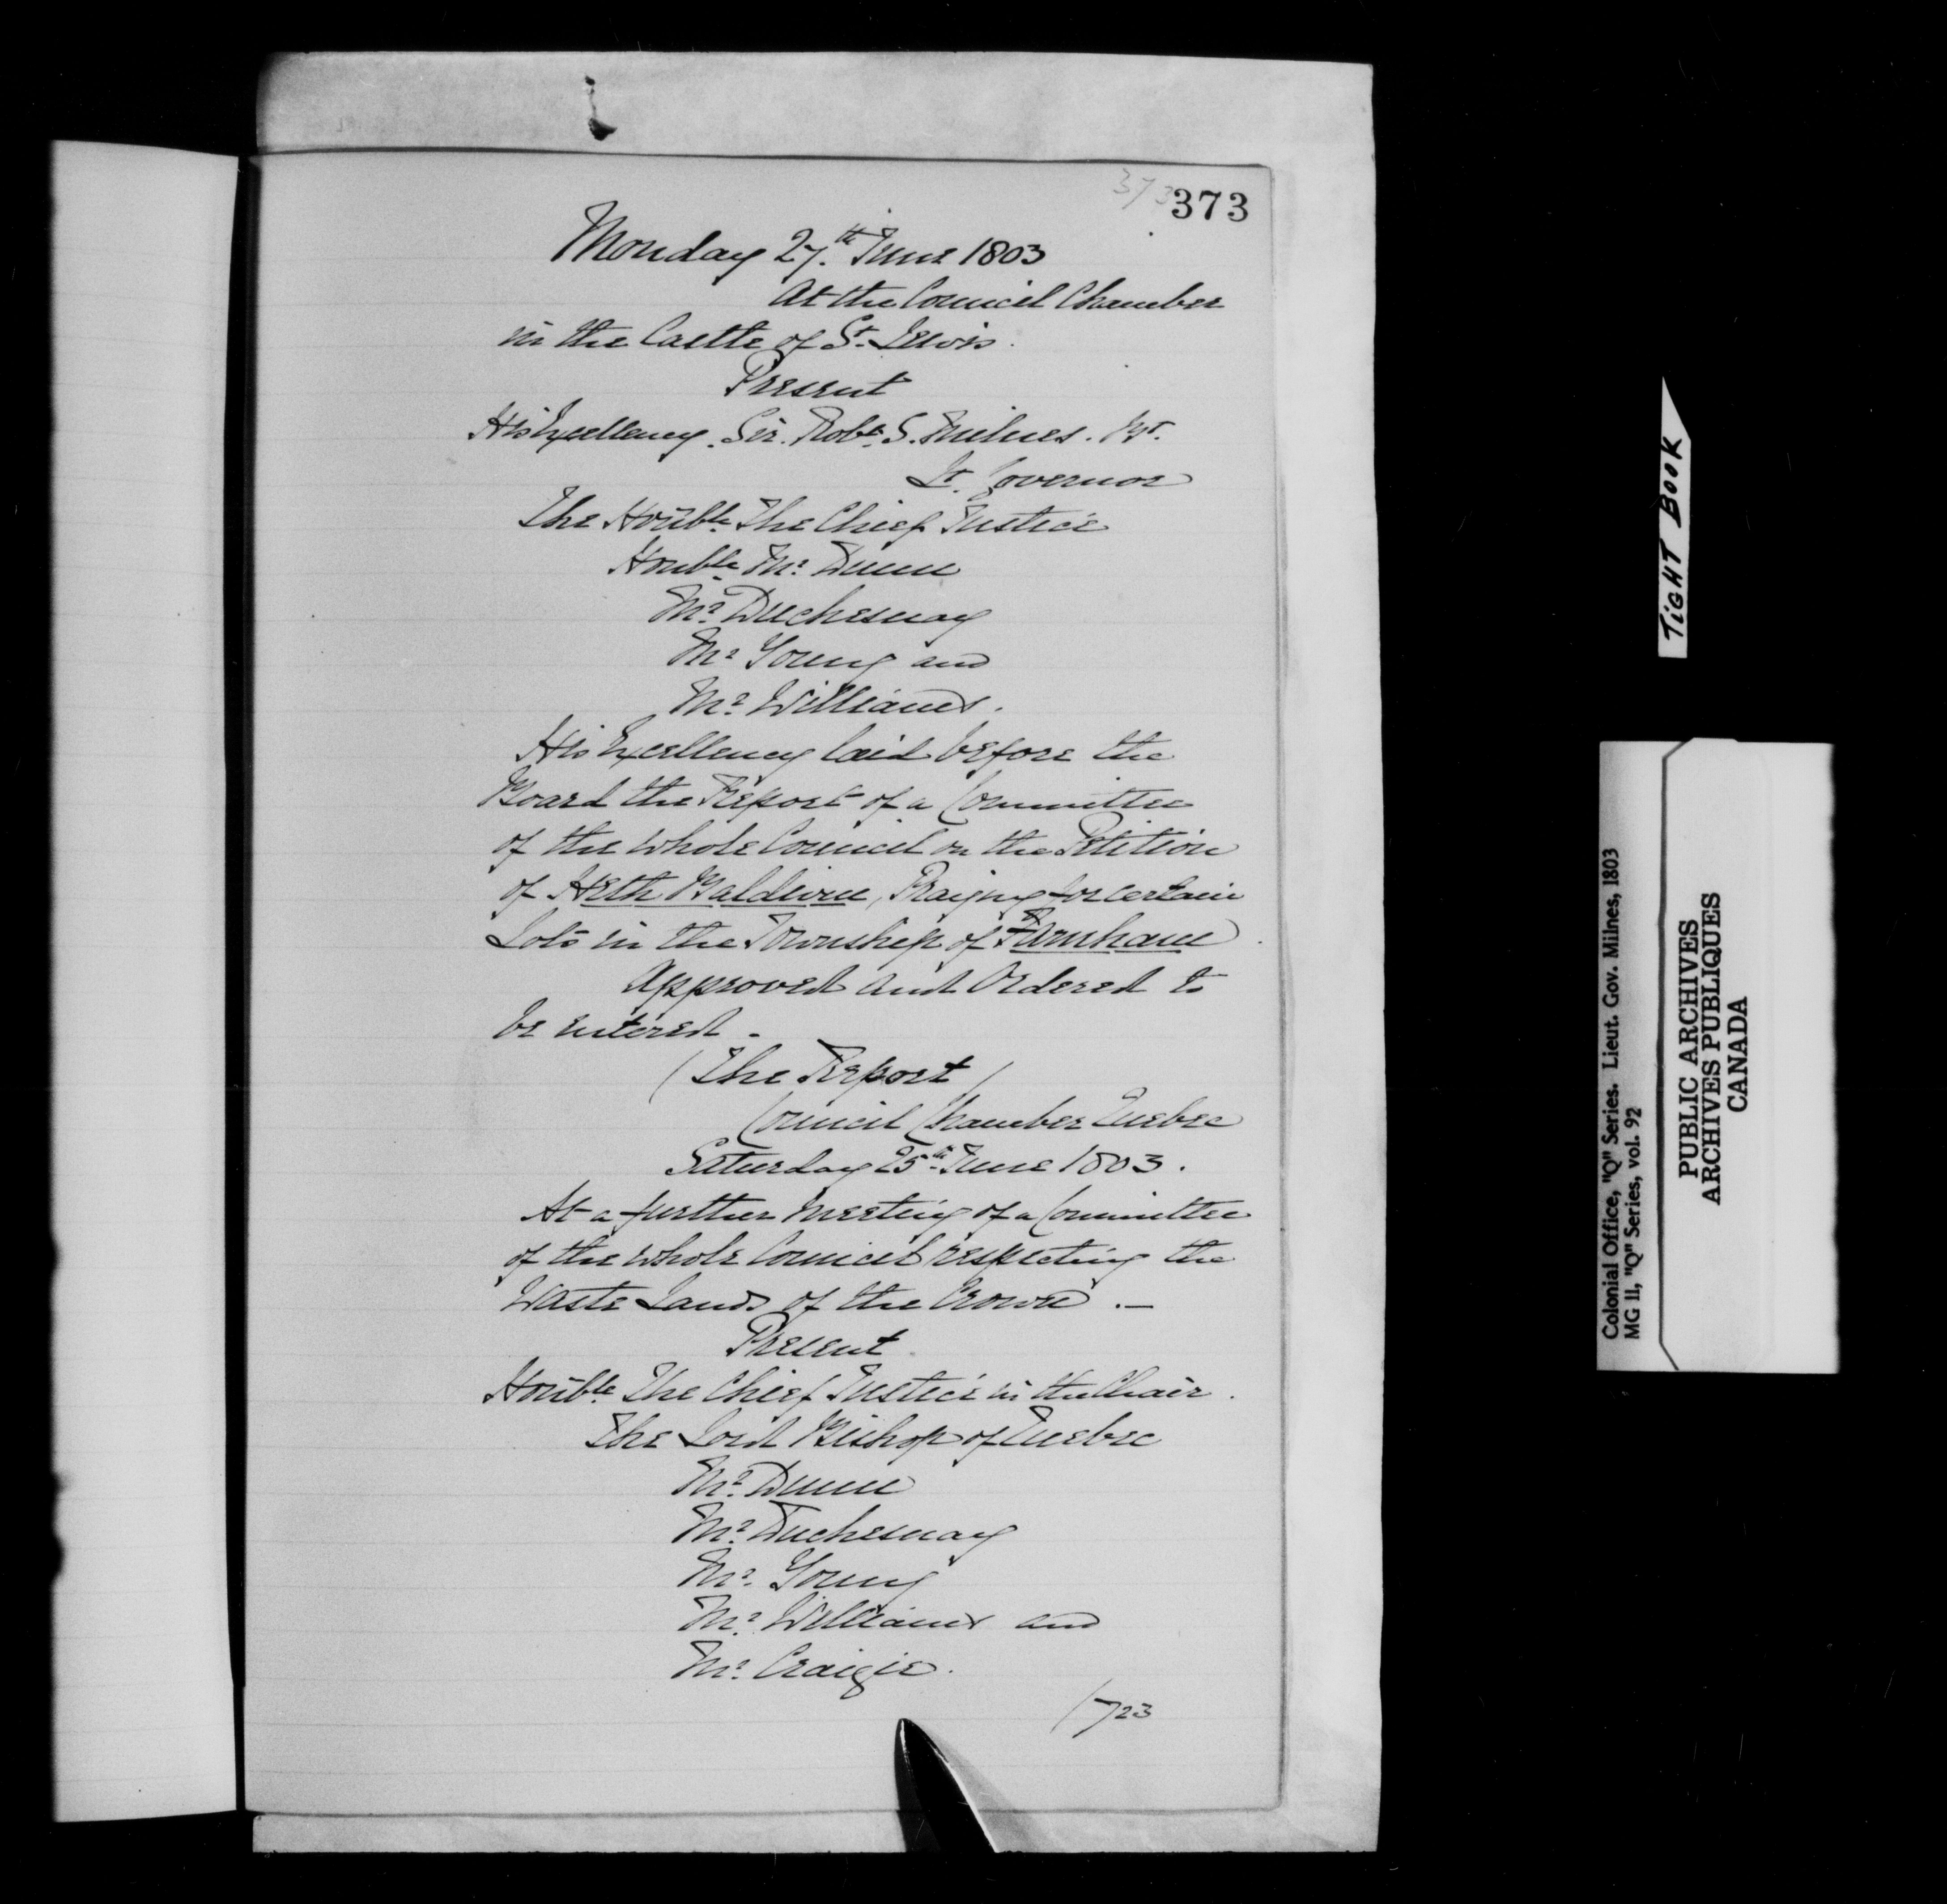 373
373
Monday 27th. June 1803
At the Council Chamber
in the Castle of St. Lewis.
Present
His Excellency. Sir. Robt. S. Milnes. Bt.
Lt. Governor
The Honble. The Chief Justice
Honble. Mr. Dunn
Mr. Duchesnay
Mr. Young and
Mr. Williams.
His Excellency laid before the
Board the Report of a Committee
of the whole Council on the Petition
of Heth Baldwin, Praying for certain
Lots in the Township of Farnham
Approved and Ordered to
be entered -
(The Report)
Council Chamber Quebec
Saturday 25th. June 1803.
At a further meeting of a Committee
of the whole Council respecting the
Waste Lands of the Crown. —
Present
Honble. The Chief Justice in the Chair.
The Lord Bishop of Quebec
Mr. Dunn
Mr. Duchesnay
Mr. Young
Mr. Williams and
Mr. Craigie.
1723
TIGHT BOOK
Colonial Office, "Q" Series. Lieut. Gov. Milnes, 1803
MG 11, "Q" Series, vol. 92
PUBLIC ARCHIVES
ARCHIVES PUBLIQUES
CANADA